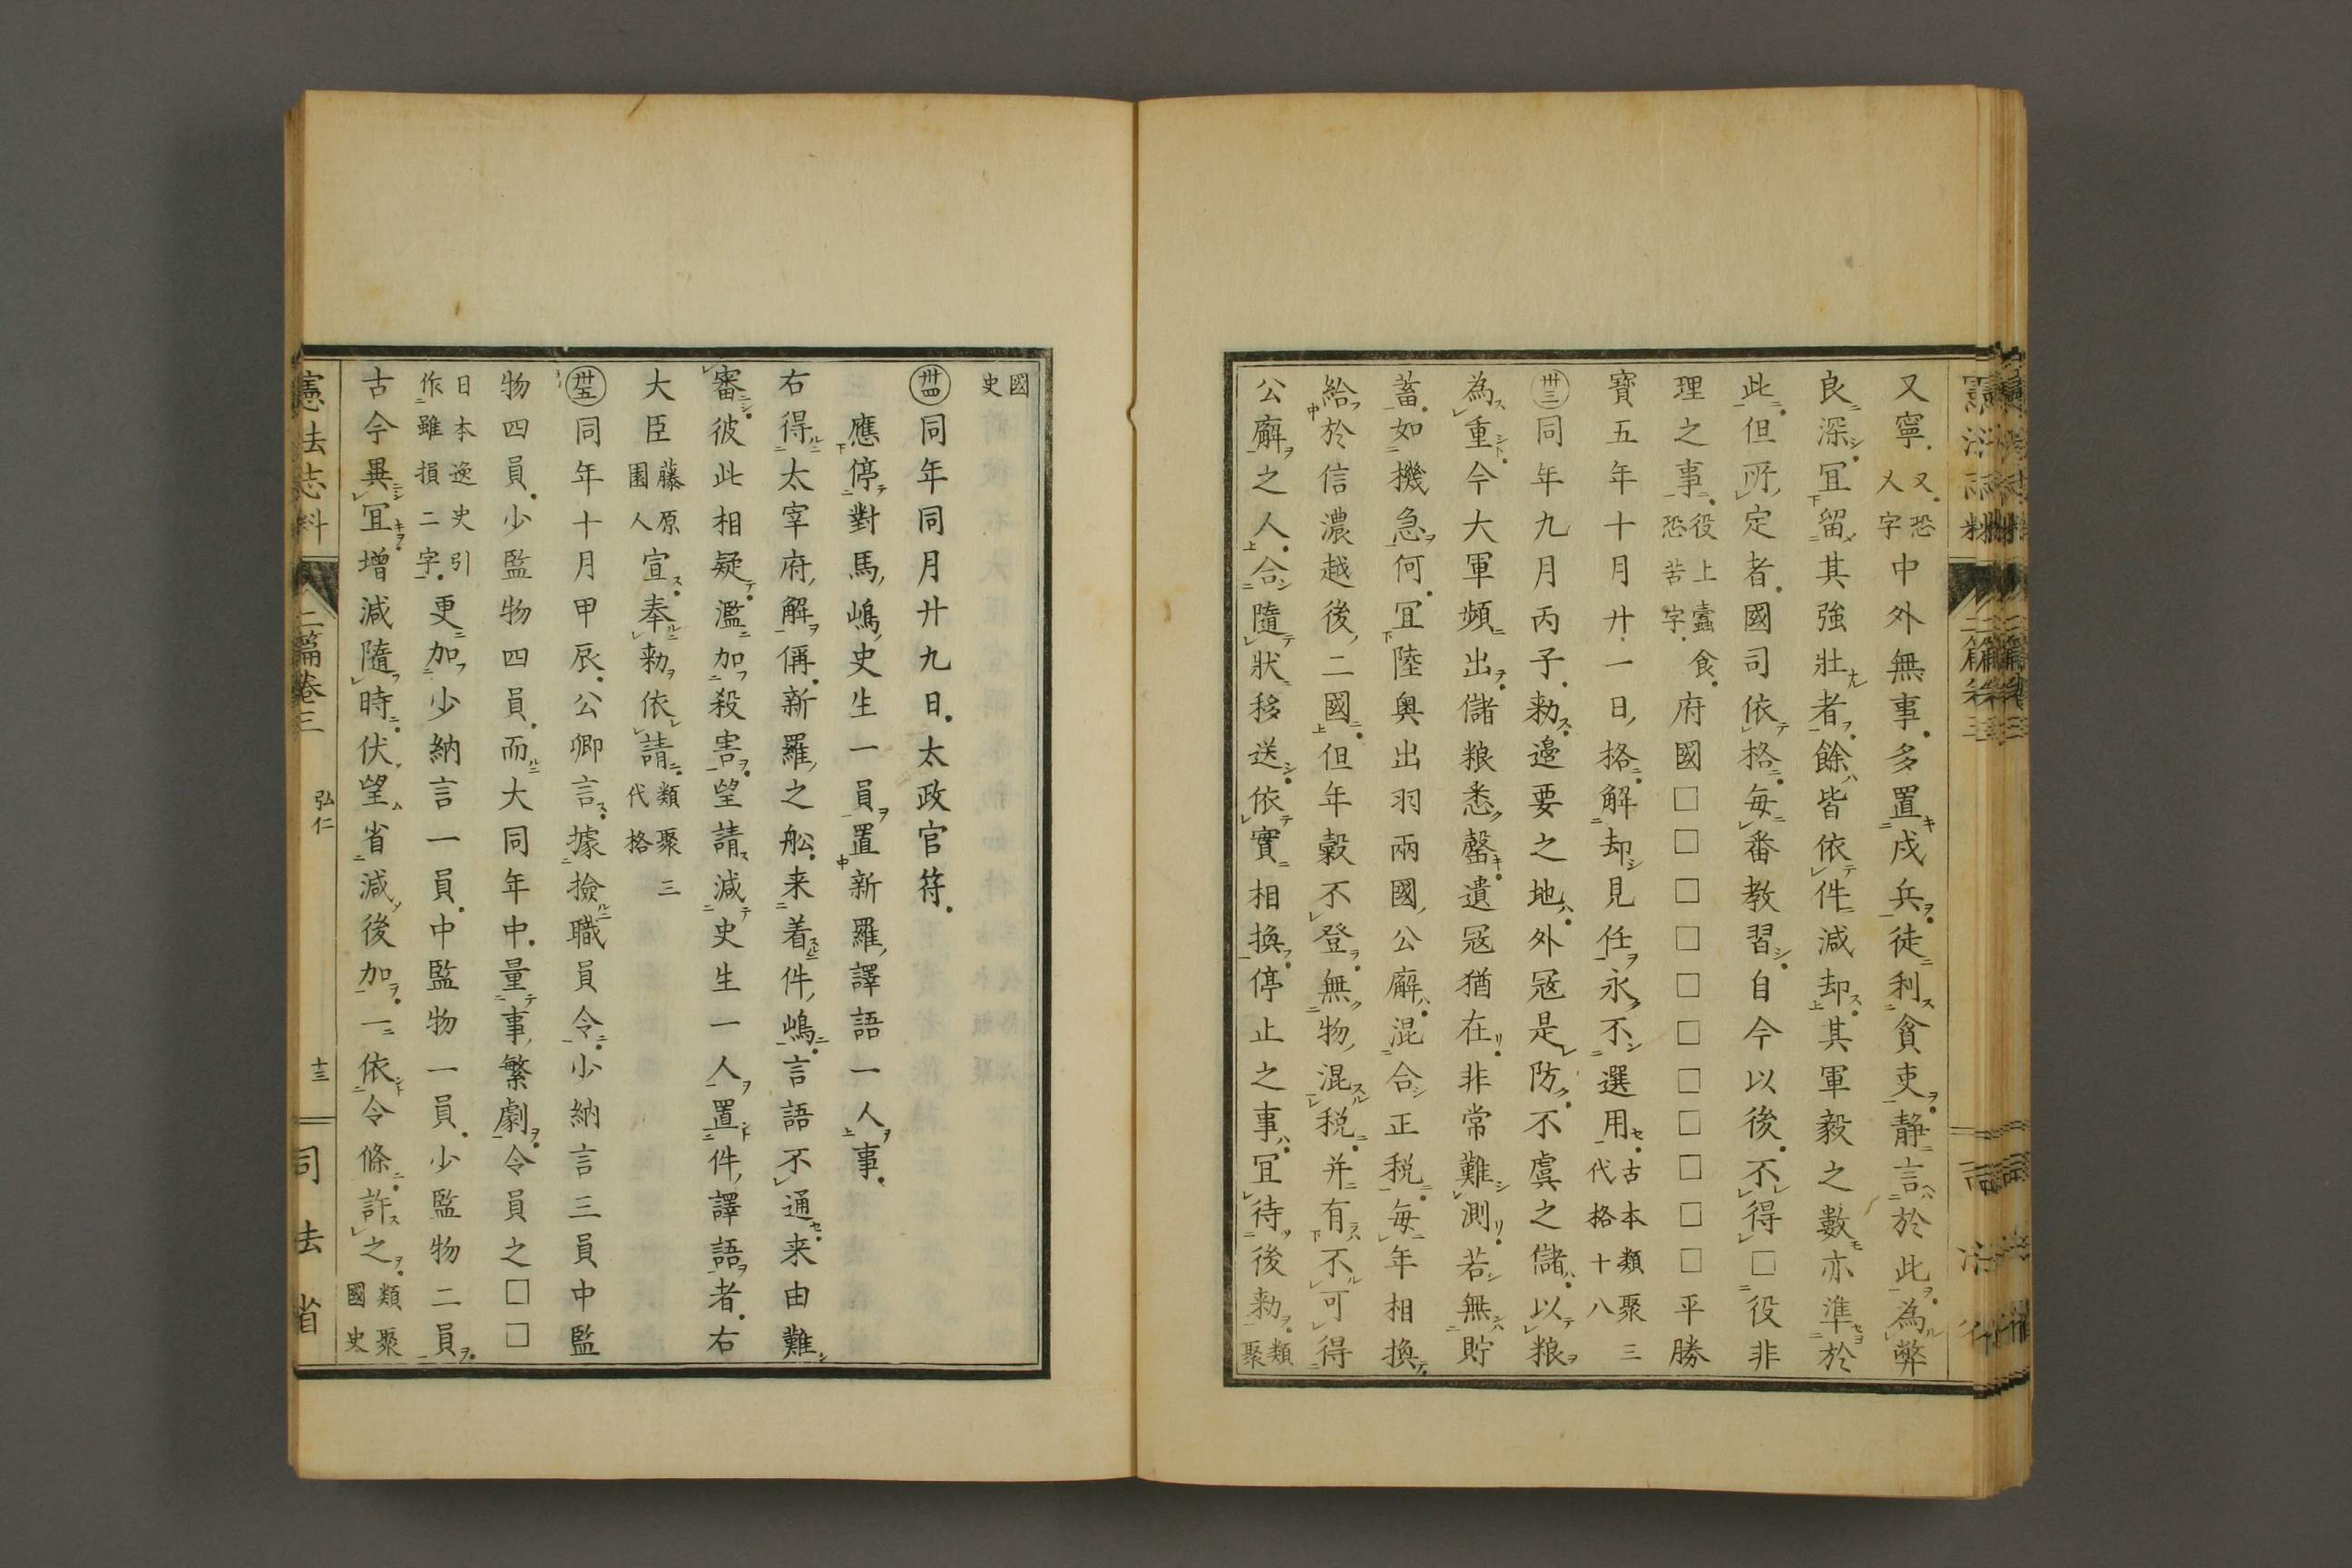 又寧又恐乂字中外無事多置戍兵徒利貪吏静言於此為弊
良深宜留其強壮者餘皆依件減却其軍毅之數亦準於
此但所定者國司依格毎番教習自今以後不得□役非
理之事役上蠹食恐苦字府國□□□□□□□□□□□平勝
寶五年十月廾一日格解却見任永不選用古本類聚三代格十八
卅三同年九月丙子勅邊要之地外冦是防不虞之儲以粮
為重今大軍頻出儲粮悉罄遺冦猶在非常難測若無貯
蓄如機急何宜陸奥出羽兩國公廨混合正税毎年相換
給於信濃越後二國但年穀不登無物混税并有不可得
公廨之人合隨狀移送依實相換停止之事宜待後勅類聚
國史
卅四同年同月廾九日太政官符
應停對馬嶋史生一員置新羅譯語一人事
右得太宰府解偁新羅之舩来着件嶋言語不通来由難
審彼此相疑濫加殺害望請減史生一人置件譯語者右
大臣藤原園人宣奉勅依請類聚三代格
卅五同年十月甲辰公卿言據撿職員令少納言三員中監
物四員少監物四員而大同年中量事繁劇令員之□□
日本逸史引作雖損二字更加少納言一員中監物一員少監物二員
古今異宜増減隨時伏望省減後加一依令條許之類聚國史
憲法志料 二篇卷三 弘仁 十三 司法省